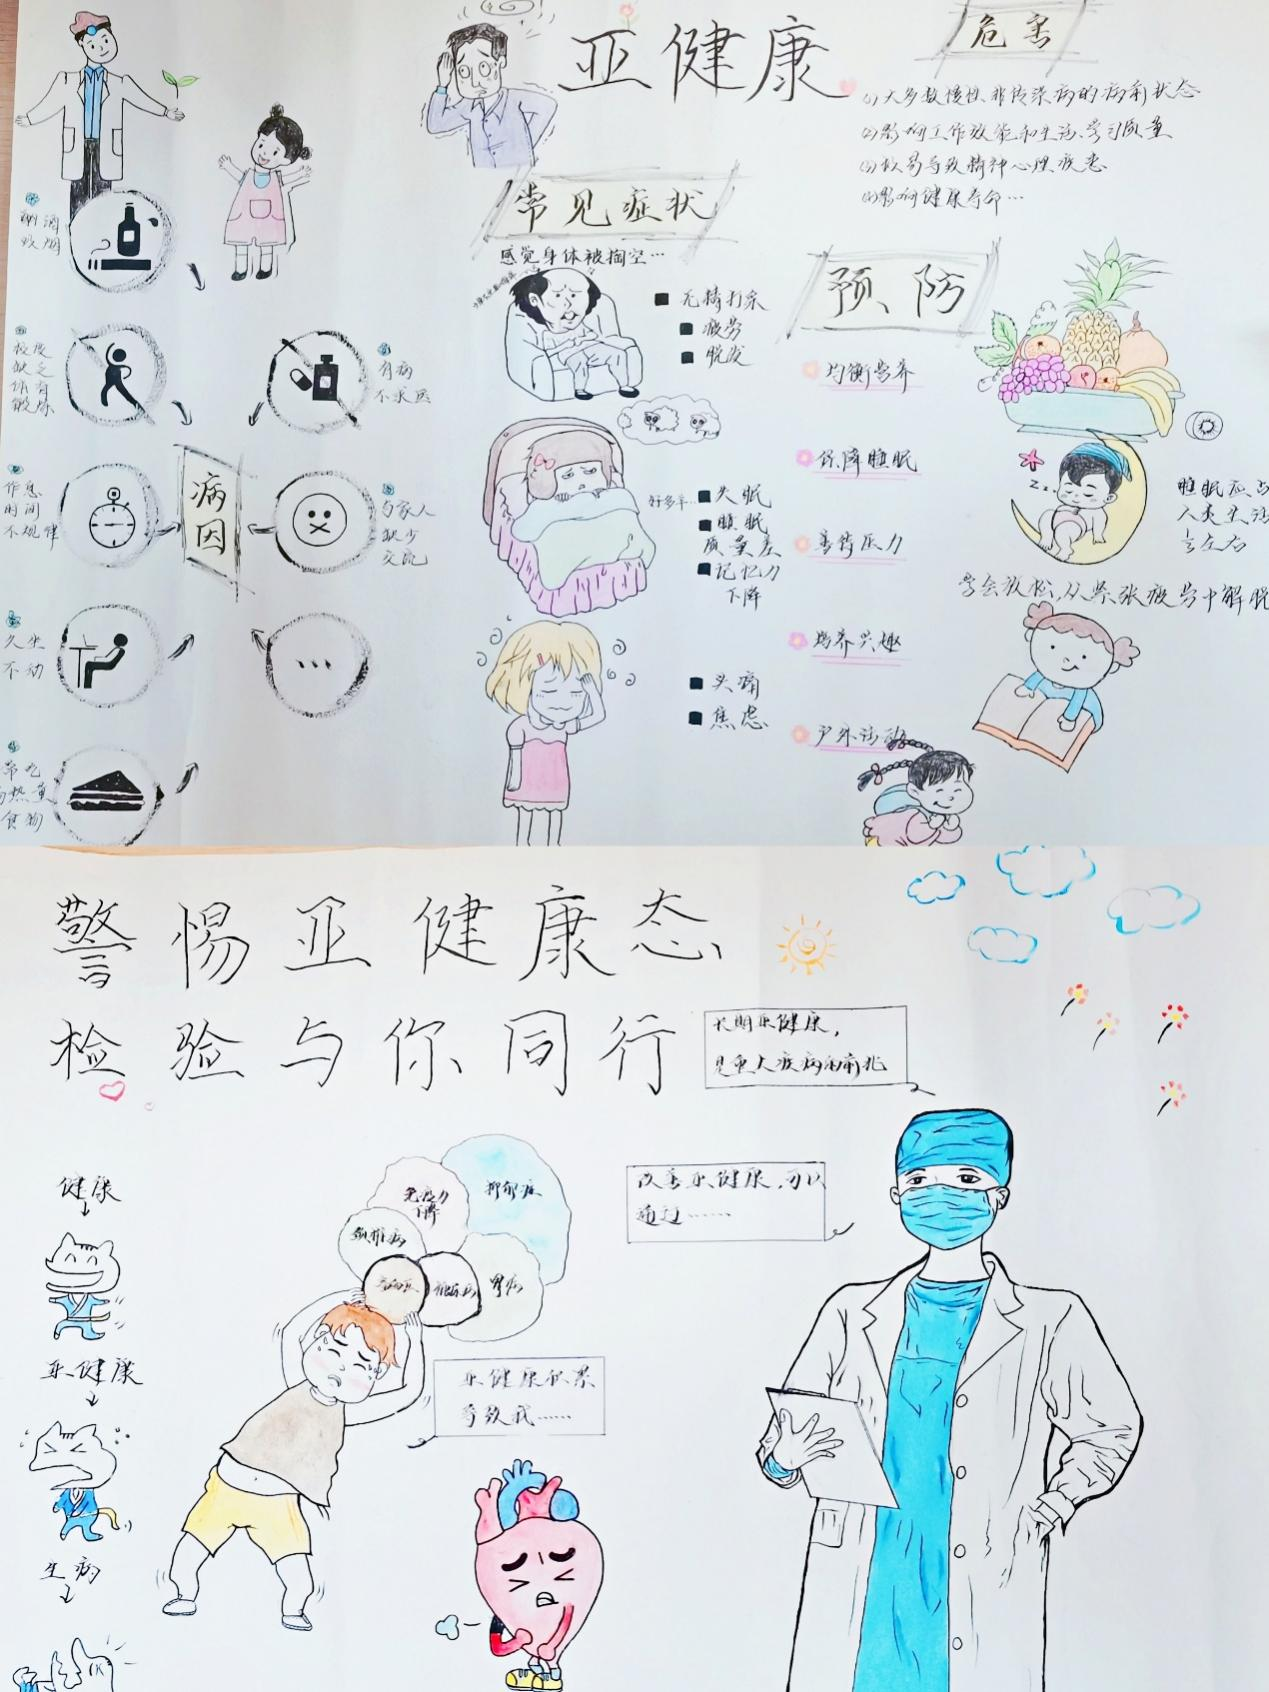 亚健康
危害
(1)大多数慢性非传染病的病前状态
(2)影响工作效能和生活、学习质量
(3)极易导致精神心理疾患
(4)影响健康寿命…
常见症状
感觉身体被掏空…
无精打采
疲劳
脱发
好多羊…
失眠
睡眠
质量差
记忆力
下降
头痛
焦虑
预防
均衡营养
保障睡眠
善待压力
培养兴趣
户外活动
睡眠应占
人类生活
1/3左右
学会放松,从紧张疲劳中解脱
病因
酗酒
吸烟
极度
缺乏
体育
锻炼
作息
时间
不规律
久坐
不动
常吃
高热量
食物
有病
不求医
与家人
缺少
交流
警惕亚健康态
检验与你同行
长期亚健康,
是重大疾病的前兆
改善亚健康,可以
通过……
健康
亚健康
生病
免疫力
下降
抑郁症
颈椎病
糖尿病
胃病
亚健康积累
导致我……